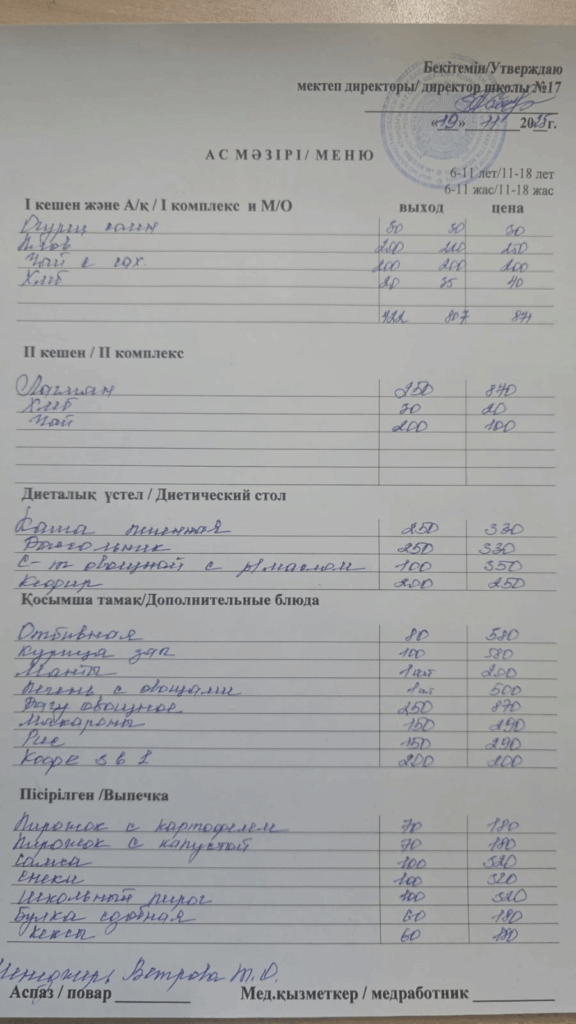 Бекітемін/Утверждаю
мектеп директоры/ директор школы №17
«19» 11 2025 г.
АС МӘЗІРІ / МЕНЮ
6-11 лет/11-18 лет
6-11 жас/11-18 жас
І кешен және А/қ / І комплекс и М/О выход цена
Огурец солен 30 30 30
Плов 250
Чай с сах. 200 200 200
Хлеб 20 35 40
807 871
ІІ кешен / ІІ комплекс
Лагман 250 840
Хлеб 30 20
Чай 200 100
Диеталық үстел / Диетический стол
Каша пшенная 250 330
Рассольник 250 330
С-т овощной с р/маслом 100 350
Кефир 200 250
Қосымша тамақ/Дополнительные блюда
Отбивная 80 580
Курица зап 100 580
Манты 1 шт 200
Печень с овощами 1 шт 500
Рагу овощное 250 870
Макароны 150 290
Рис 150 290
Кофе 3 в 1 200 200
Пісірілген /Выпечка
Пирожок с картофелем 70 180
Пирожок с капустой 70 180
Самса 100 320
100 320
Школьный пирог 100 320
Булка сдобная 60 180
Кексы 60 180
Менеджер Ветрова Т.О.
Аспаз / повар Мед.қызметкер / медработник